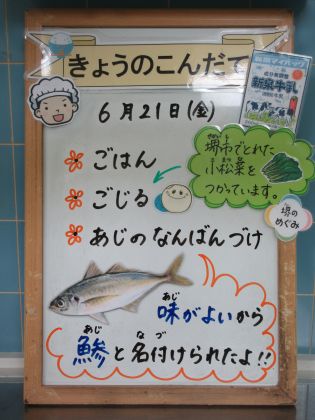 きょうのこんだて
6月21日(金)
新泉牛乳
ごはん
ごじる
あじのなんばんづけ
堺市でとれた
小松菜を
つかっています。
堺の
めぐみ
味がよいから
鯵と名付けられたよ!!
さかいし
こまつな
あじ
あじ
なづ